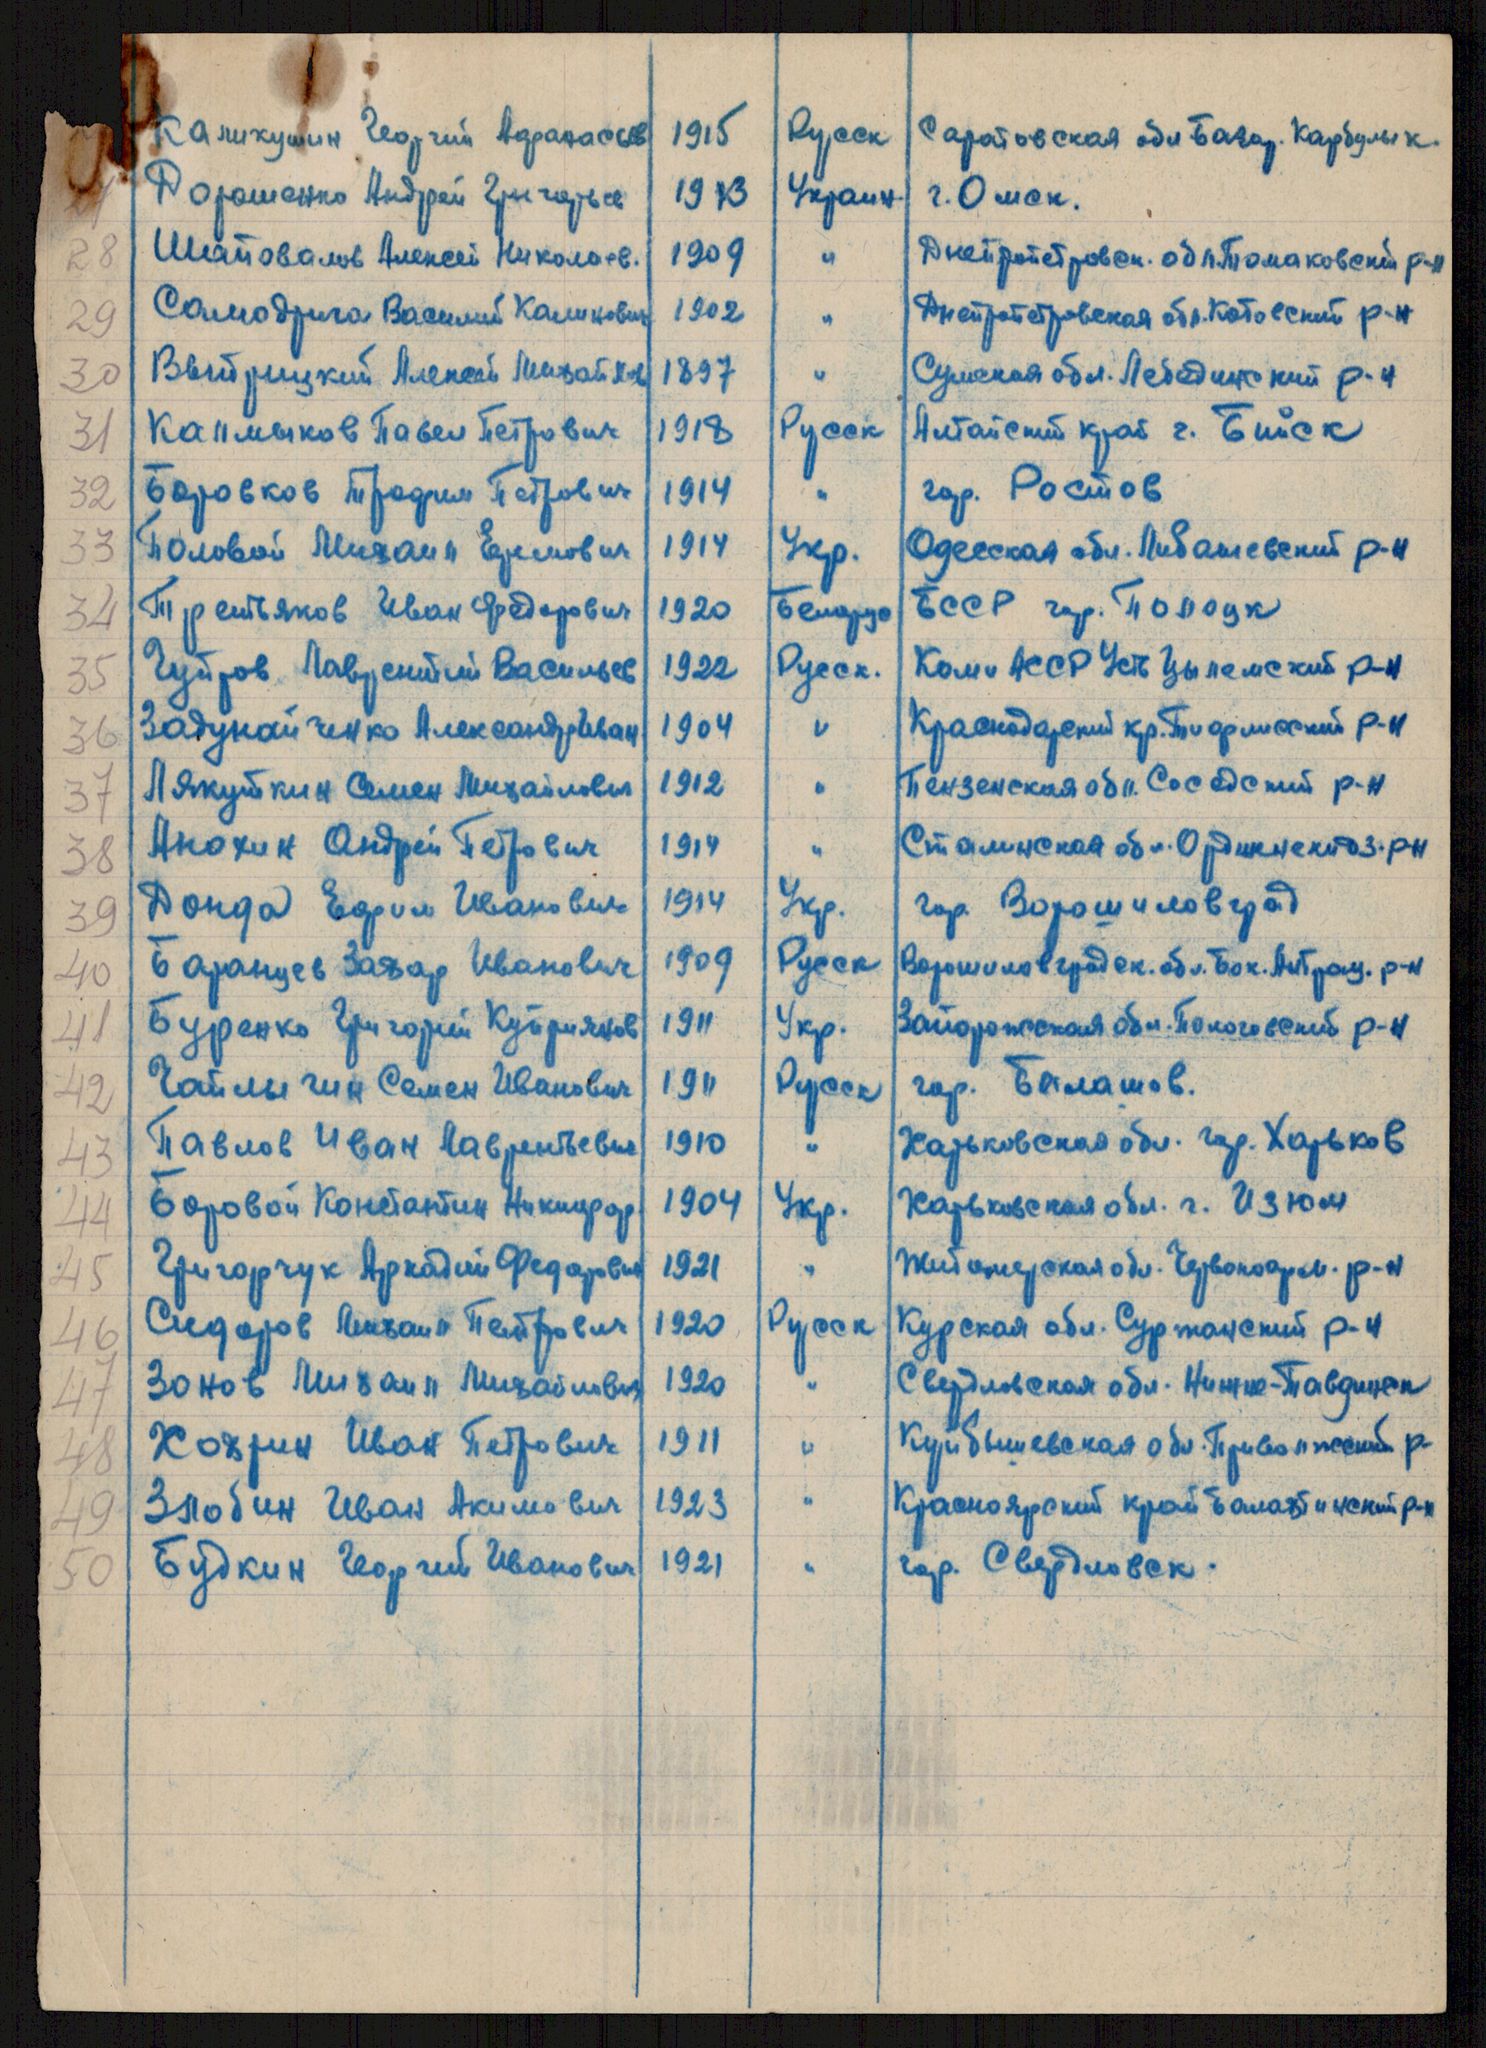 Каликушин Георгий Афанасьев 1915 Русск Саратовская обл Базар. Карбулык.
Дорошенко Андрей Григорьев 1913 Украин. г. Омск.
28 Шаповалов Алексей Николаев. 1909 " Днепропетровск. обл. Томаковский р-н
29 Самодрига Василий Калинович 1902 " Днепропетровская обл. Котовский р-н
30 Выприцкий Алексей Михайлов 1897 " Сумская обл. Лебединский р-н
31 Калмыков Павел Петрович 1918 Русск Алтайский край г. Бийск
32 Боровков Трофим Петрович 1914 " гор. Ростов
33 Половой Михаил Ефимович 1914 Укр. Одесская обл. Либашевский р-н
34 Третьяков Иван Федорович 1920 Белорус БССР гор. Полоцк
35 Чупров Лаврентий Васильев 1922 Русск. Коми АССР Усть Цылемский р-н
36 Задунайченко Александр Иван 1904 " Краснодарский кр. р-н
37 Лякуткин Семен Михайлович 1912 " Пензенская обл. Соседский р-н
38 Анохин Андрей Петрович 1914 " Сталинская обл. р-н
39 Донда Ефим Иванович 1914 Укр. гор. Ворошиловград
40 Баранцев Захар Иванович 1909 Русск Ворошиловградск. обл. Бок. Антрац. р-н
41 Буренко Григорий Куприянов 1911 Укр. Запорожская обл. Пологовский р-н
42 Чаплыгин Семен Иванович 1911 Русск гор. Балашов.
43 Павлов Иван Лаврентьевич 1910 " Харьковская обл. гор. Харьков
44 Боровой Константин Никифор 1904 Укр. Харьковская обл. г. Изюм
45 Григорчук Аркадий Федорович 1921 " Житомерская обл. Червоноарм. р-н
46 Сидоров Михаил Петрович 1920 Русск Курская обл. Суржанский р-н
47 Зонов Михаил Михайлович 1920 " Свердловская обл. Нижне-Тавдинск
48 Хохрин Иван Петрович 1911 " Куйбышевская обл. Приволжский р-
49 Злобин Иван Акимович 1923 " Красноярский край Балахтинский р-н
50 Будкин Георгий Иванович 1921 " гор. Свердловск.